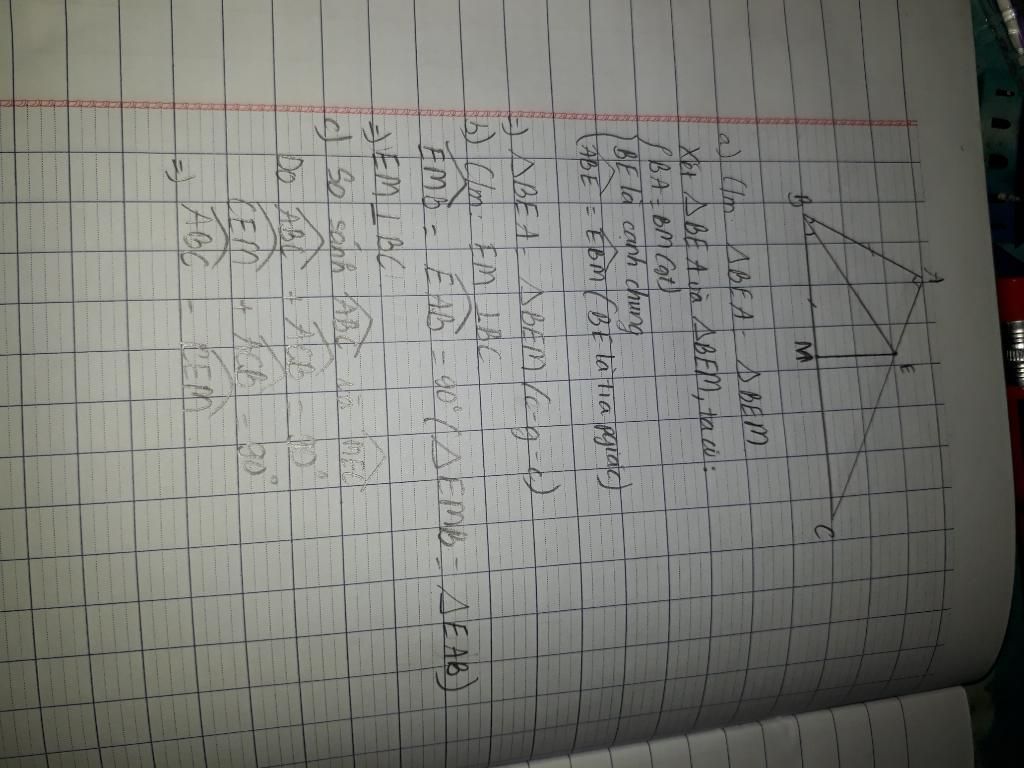 A
B
E
M
C
a) C/m ΔBEA = ΔBEM
Xét ΔBEA và ΔBEM, ta có:
BA = BM (gt)
BE là cạnh chung
ABE = EBM (BE là tia pg góc)
=) ΔBEA = ΔBEM (c-g-c)
b) C/m: EM ⊥ BC
EMB = EAB = 90° (ΔEMB = ΔEAB)
=) EM ⊥ BC
c) So sánh ABC và MEC
Do ABC + ACB = 90°
CEM + ACB = 90°
=) ABC = CEM